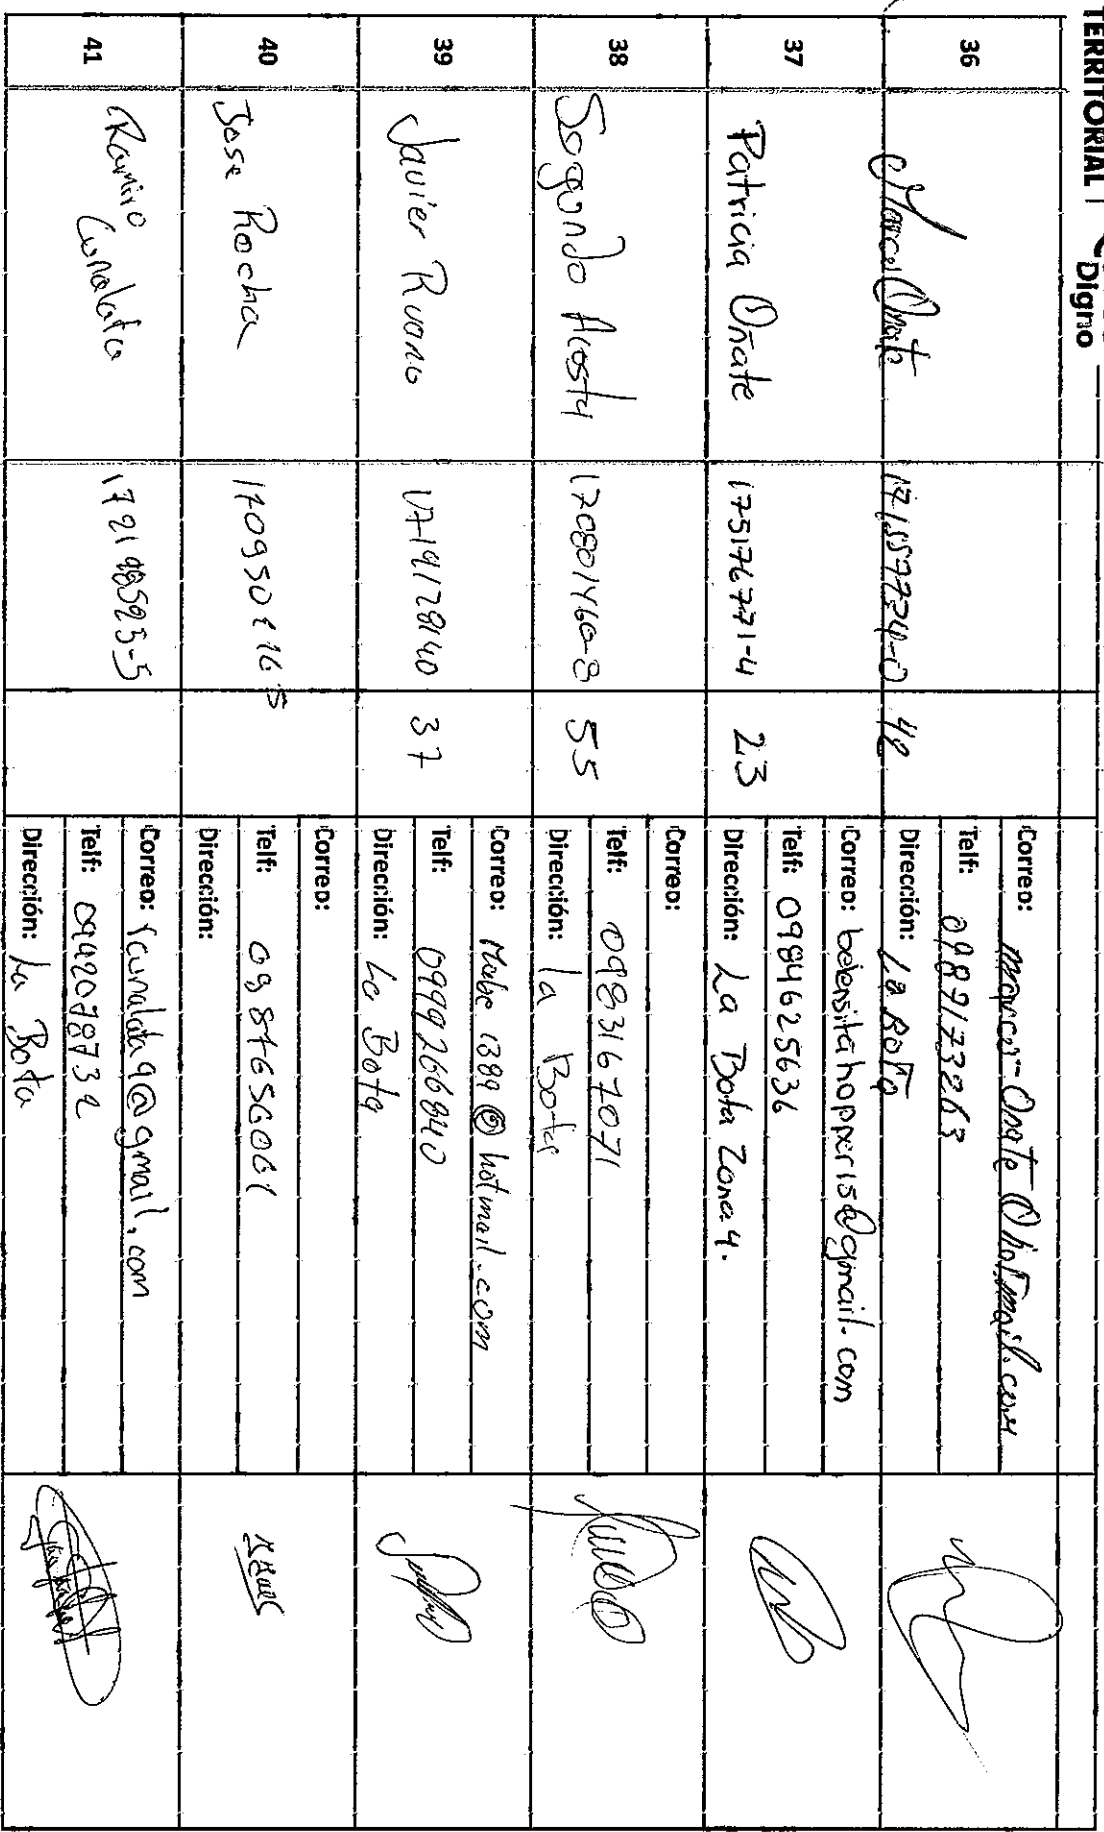 TERRITORIAL
Digno
36
Marco Oñate
171557724-0
42
Correo: marco-Onate@hotmail.com
Telf: 0987173263
Dirección: La Bota
37
Patricia Oñate
175176771-4
23
Correo: belensitahopperis@gmail.com
Telf: 0984625636
Dirección: La Bota Zona 4.
38
Segundo Acosta
170801460-8
55
Correo:
Telf: 0983167071
Dirección: la Bota
39
Javier Ruano
1719128140
37
Correo: Mabe 1389@hotmail.com
Telf: 0999266840
Dirección: La Bota
40
Jose Rocha
Correo:
Telf:
Dirección:
41
Ramiro Cunalata
Correo: rcunalata9@gmail.com
Telf: 0942078732
Dirección: La Bota